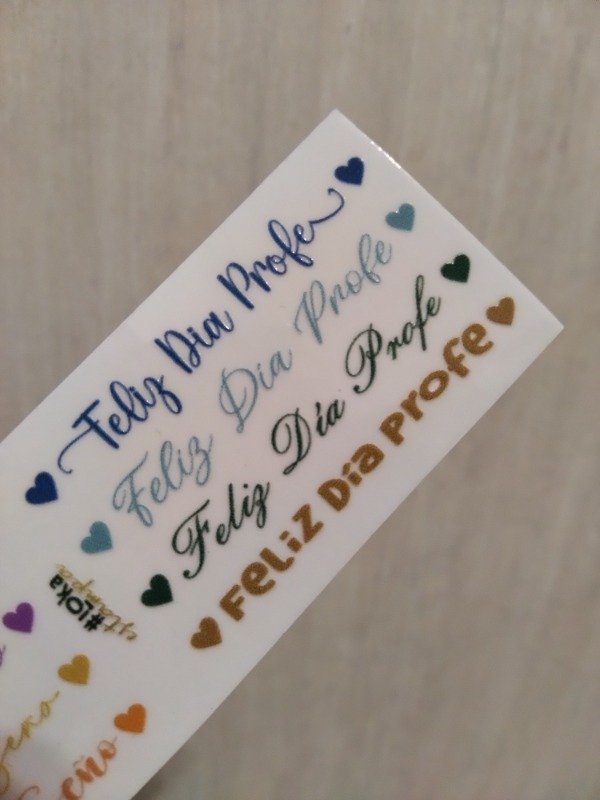 Feliz Dia Profe
Feliz Dia Profe
Feliz Día Profe
FeLiZ Día Profe
#LOKA
ytanpa
Seño